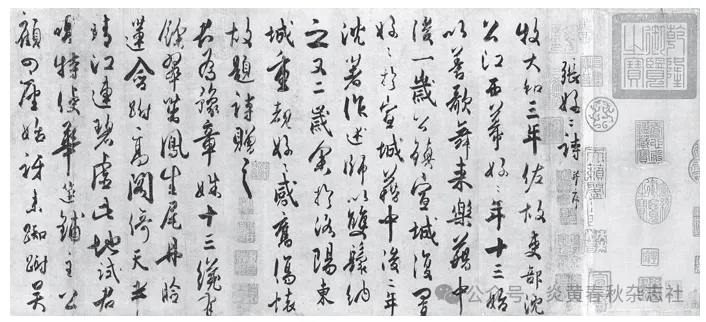 乾隆御覽之寶
張好〻詩 并序
牧大和三年佐故吏部沈
公江西幕好〻年十三始
以善歌舞来樂籍中
後一歲公鎮宣城復置
好〻於宣城籍中後二年
沈著作述師以雙鬟納
之又二歲余於洛陽東
城重覩好〻感舊傷懷
故題詩贈之
君為豫章姝十三纔有
餘翠茁鳳生尾丹臉
蓮含跗高閣倚天半
晴江連碧虛此地試君
唱特使華筵鋪主公
顧四座始訝来踟蹰吳
公众号·炎黄春秋杂志社